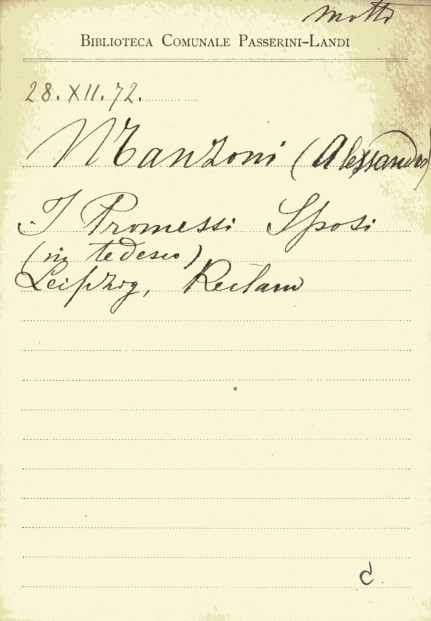 Motti
BIBLIOTECA COMUNALE PASSERINI-LANDI
28. XII. 72.
Manzoni (Alessandro)
I Promessi Sposi
(in tedesco)
Leipzig, Reclam
C